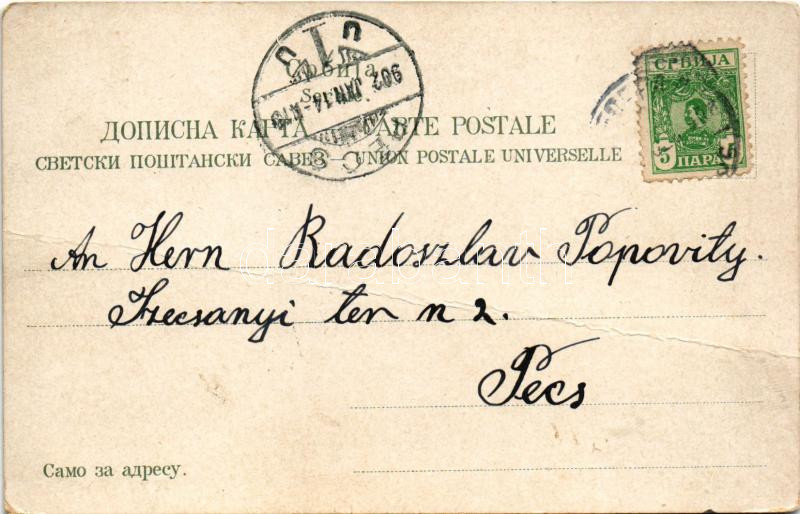 Србија
902 JAN. 14
PÉCS
СРБИЈА
5 ПАРА
ДОПИСНА КАРТА — CARTE POSTALE
СВЕТСКИ ПОШТАНСКИ САВЕЗ — UNION POSTALE UNIVERSELLE
An Hern Radoszlav Popovity.
Szecsanyi ter n 2.
Pécs
Само за адресу.